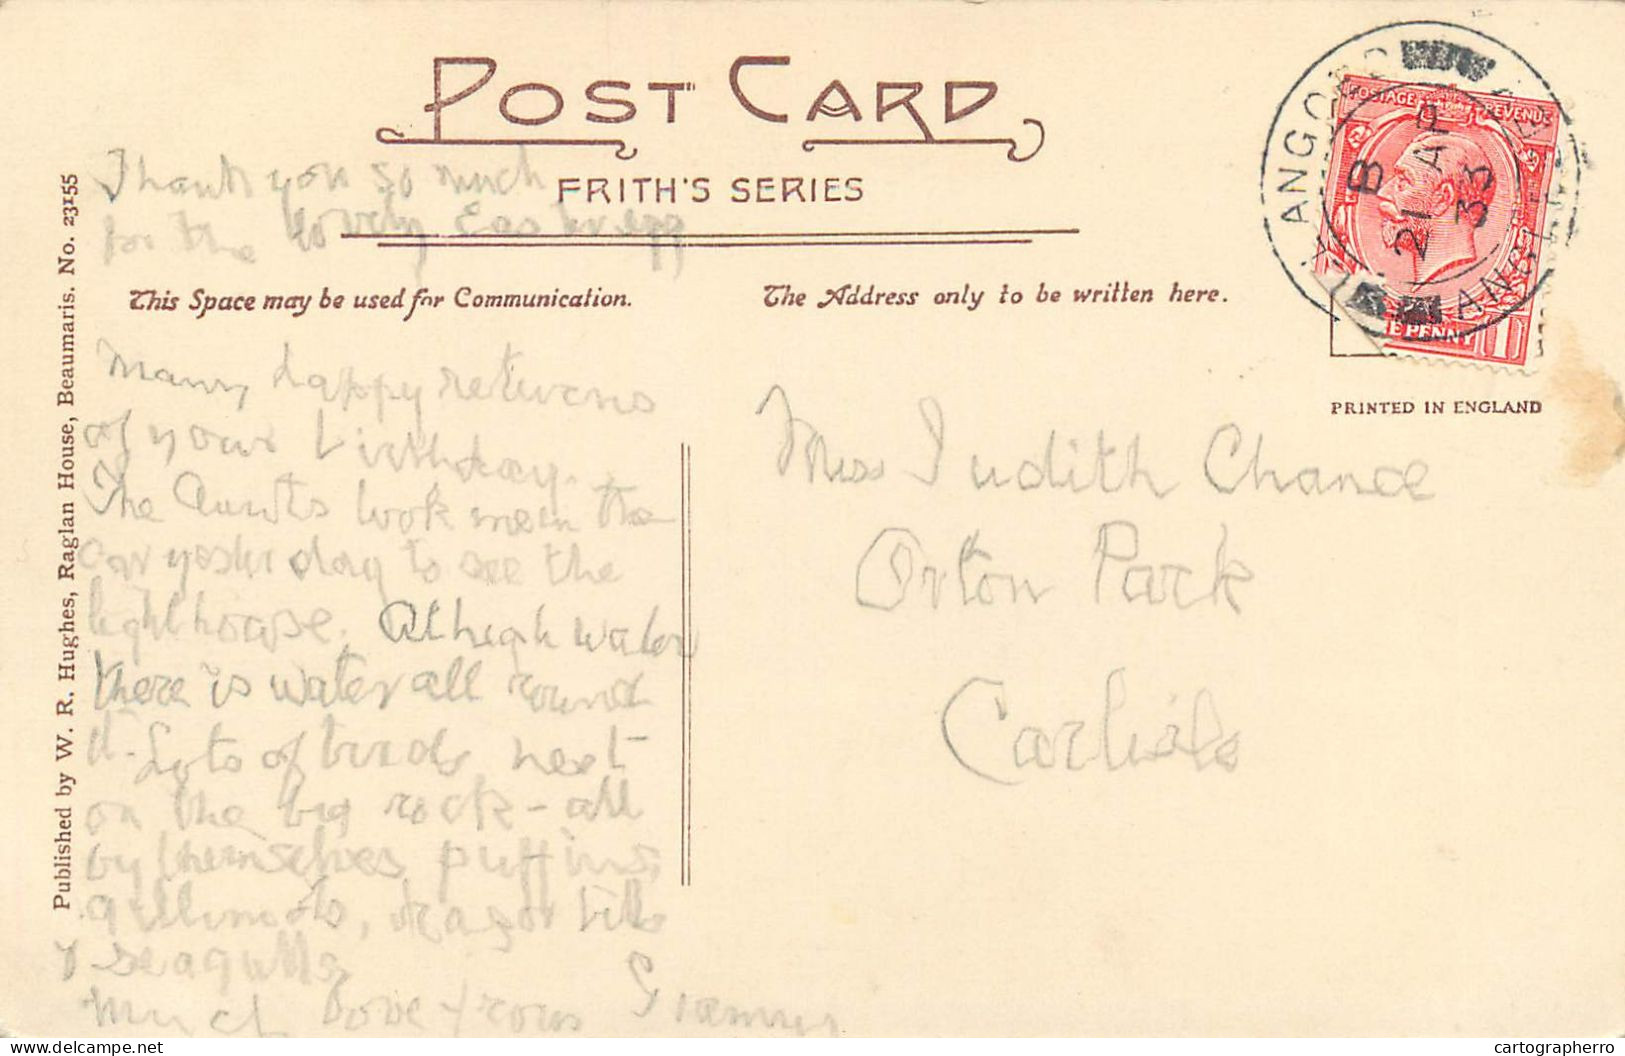 POST CARD
FRITH'S SERIES
Thank you so much
for the lovely Easter egg
This Space may be used for Communication.
The Address only to be written here.
Many happy returns
of your birthday.
The Aunts took me in the
car yesterday to see the
lighthouse. At high water
there is water all round
it. Lots of birds nest
on the big rock - all
by themselves puffins,
gillimots, razor bills
& seagulls
Much love from Granny
Miss Judith Chance
Orton Park
Carlisle
PRINTED IN ENGLAND
Published by W. R. Hughes, Raglan House, Beaumaris. No. 23155
POSTAGE REVENUE
E PENNY 1
LLANGOED
B
21 AP
33
ANGLESEY
cartographerro